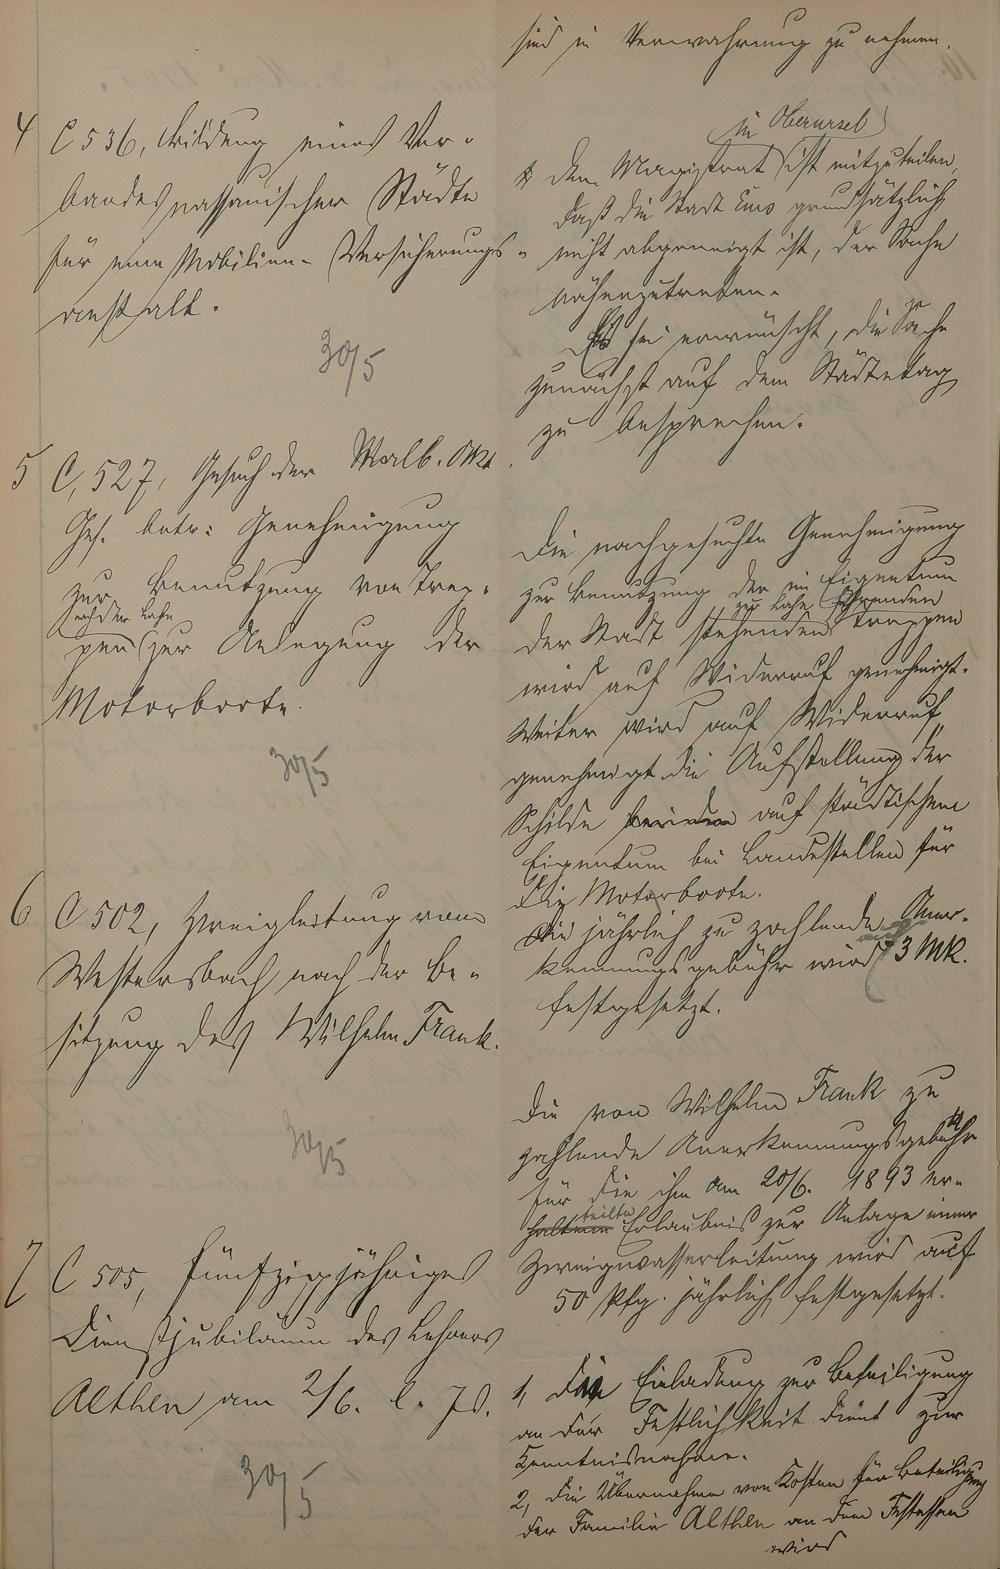 sind in Verwahrung zu nehmen.
4 C 536, Bildung eines Ver-
bandes nassauischer Städte
für eine Mobilien-Versicherungs-
anstalt.
30/5
in Oberursel
Dem Magistrat ist mitzuteilen,
daß die Stadt Ems grundsätzlich
nicht abgeneigt ist, der Sache
näherzutreten.
Es sei erwünscht, die Sache
zunächst auf dem Städtetag
zu besprechen.
5 C, 527, Gesuch der Malb.
Ges. betr: Genehmigung
zur Benutzung von Trep-
nach der Lahn
pen zur Anlegung der
Motorboote.
30/5
Die nachgesuchte Genehmigung
zur Benutzung der im Eigentum
zur Lahn führenden
der Stadt stehenden Treppen
wird auf Widerruf genehmigt.
Weiter wird auf Widerruf
genehmigt die Aufstellung der
Schilde auf städtischem
Eigentum bei Landestellen für
die Motorboote.
Die jährlich zu zahlende Aner-
kennungsgebühr wird 3 Mk.
festgesetzt.
6 C 502, Zweigleitung vom
Westersbach nach der Be-
sitzung des Wilhelm Frank.
30/5
Die von Wilhelm Frank zu
zahlende Anerkennungsgebühr
für die ihm am 20/6. 1893 er-
teilte
haltene Erlaubnis zur Anlage einer
Zweigwasserleitung wird auf
50 Pfg. jährlich festgesetzt.
7 C 505, Fünfzigjähriges
Dienstjubiläum des Lehrers
Althen am 2/6. l. Js.
30/5
1, Die Einladung zur Beteiligung
an der Festlichkeit dient zur
Kenntnisnahme.
2, Die Übernahme von Kosten für Beteiligung
der Familie Althen an dem Festessen
wird